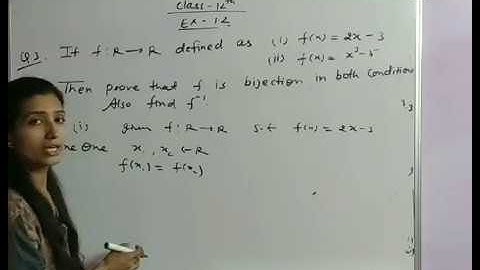 Class-12th
Ex-1.2
Q.3. If f: R→R defined as (i) f(x) = 2x-3
(ii) f(x) = x³-5
Then prove that f is bijection in both condition
Also find f⁻¹
(i) given f: R→R s.t f(x) = 2x-3
One One x₁, x₂ ∈ R
f(x₁) = f(x₂)